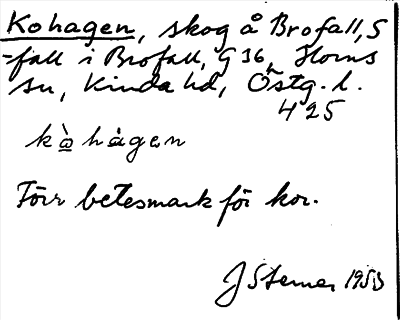 Kohagen, skog å Brofall, S
-fall i Brofall, G 36, Horns
sn, Kinda hd, Östg. l.
425
kὼhágen
Förr betesmark för kor.
J Sterner 1953